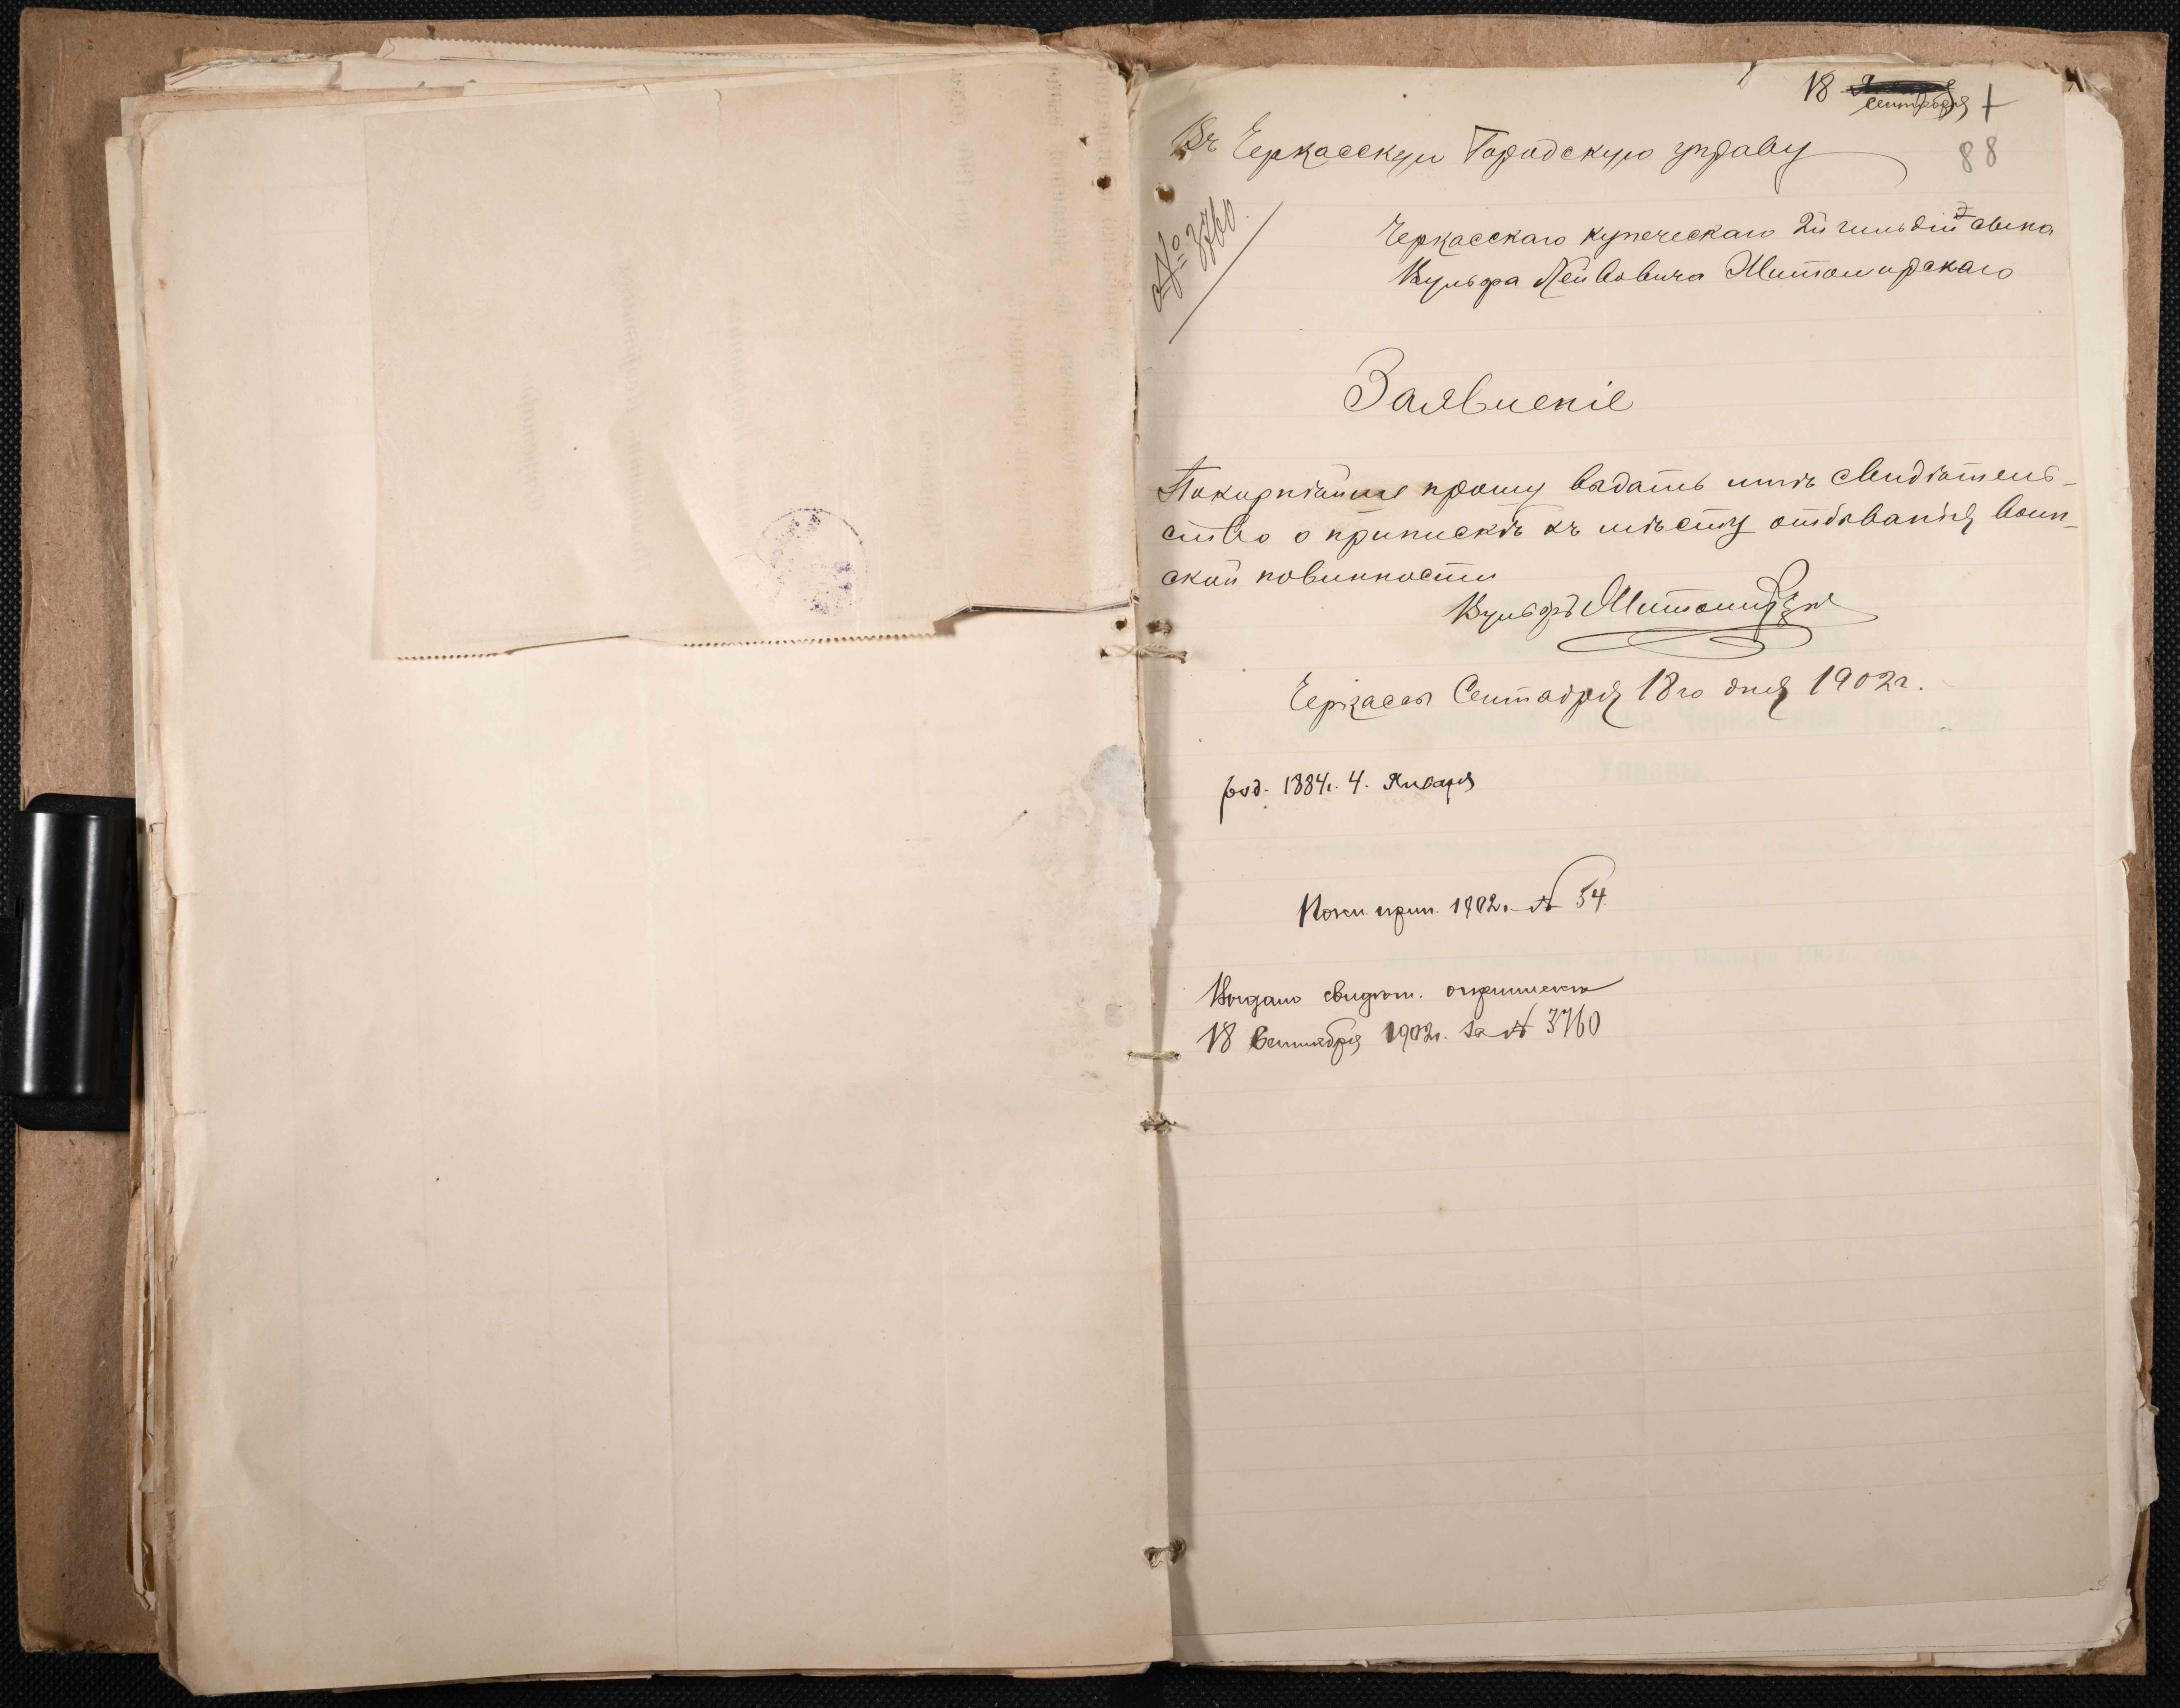 18
Сентября
88
Въ Черкасскую Городскую управу
№ 3760.
Черкасскаго купеческаго 2й гильдіи сына
Вульфа Лейбовича Житомирскаго
Заявленіе
Покорнѣйше прошу выдать мнѣ свидѣтель-
ство о припискѣ къ мѣсту отбыванія воин-
ской повинности
Вульфъ Житомирскій
Черкассы Сентября 18го дня 1902г.
род. 1884г. 4. Января
прип. 1902г. № 54.
Выдано свидѣт. о припискѣ
18 Сентября 1902г. за № 3760